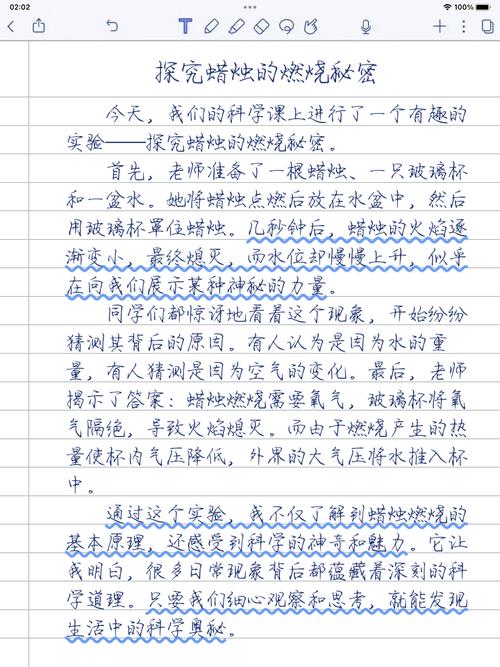 02:02
100%
T
探究蜡烛的燃烧秘密
今天，我们的科学课上进行了一个有趣的
实验——探究蜡烛的燃烧秘密。
首先，老师准备了一根蜡烛、一只玻璃杯
和一盆水。她将蜡烛点燃后放在水盆中，然后
用玻璃杯罩住蜡烛。几秒钟后，蜡烛的火焰逐
渐变小，最终熄灭，而水位却慢慢上升，似乎
在向我们展示某种神秘的力量。
同学们都惊讶地看着这个现象，开始纷纷
猜测其背后的原因。有人认为是因为水的重
量，有人猜测是因为空气的变化。最后，老师
揭示了答案：蜡烛燃烧需要氧气，玻璃杯将氧
气隔绝，导致火焰熄灭。而由于燃烧产生的热
量使杯内气压降低，外界的大气压将水推入杯
中。
通过这个实验，我不仅了解到蜡烛燃烧的
基本原理，还感受到科学的神奇和魅力。它让
我明白，很多日常现象背后都蕴藏着深刻的科
学道理。只要我们细心观察和思考，就能发现
生活中的科学奥秘。